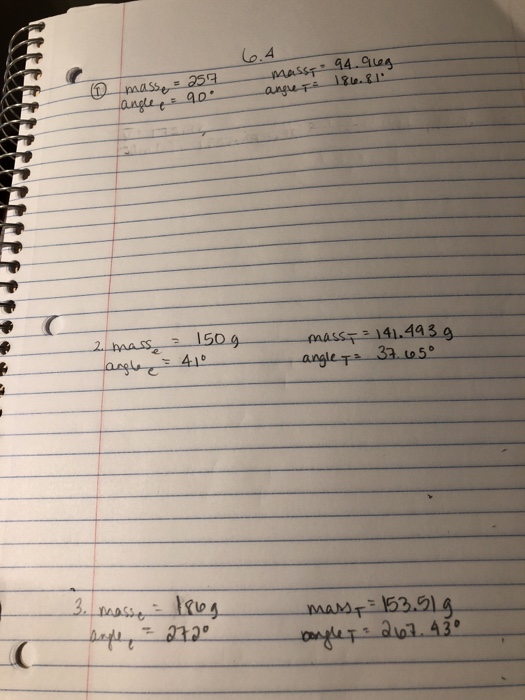 6.4
① mass_e = 257 mass_T = 94.96g
angle_e = 90° angle_T = 186.81°
2. mass_e = 150 g mass_T = 141.493 g
angle_e = 41° angle_T = 37.65°
3. mass_e = 186g mass_T = 153.51 g
angle_e = 272° angle_T = 267.43°